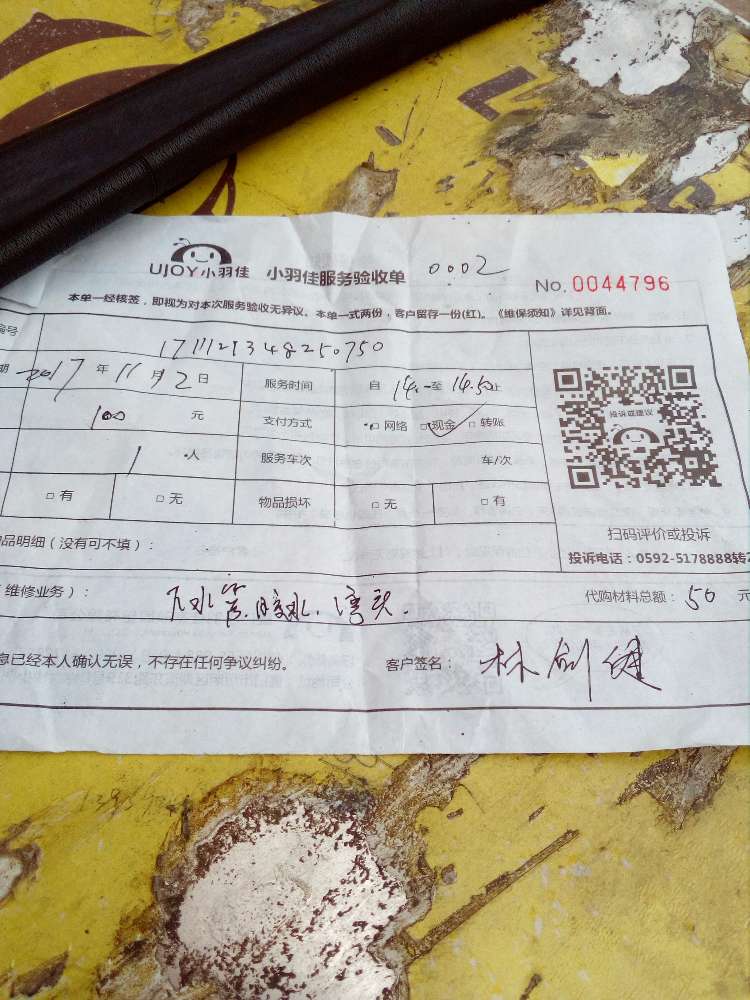 UJOY小羽佳 小羽佳服务验收单 0002
No.0044796
本单一经核签，即视为对本次服务验收无异议。本单一式两份，客户留存一份(红)。《维保须知》详见背面。
编号
期 2017年11月2日 服务时间 自14:-至14.50止
100 元 支付方式 □网络 □现金 □转账
1 人 服务车次 车/次
□有 □无 物品损坏 □无 □有
投诉或建议
扫码评价或投诉
投诉电话：0592-5178888转2
品明细（没有可不填）：
（维修业务）： 下水管.胶水.湾头. 代购材料总额：50 元
息已经本人确认无误，不存在任何争议纠纷。 客户签名： 林剑健